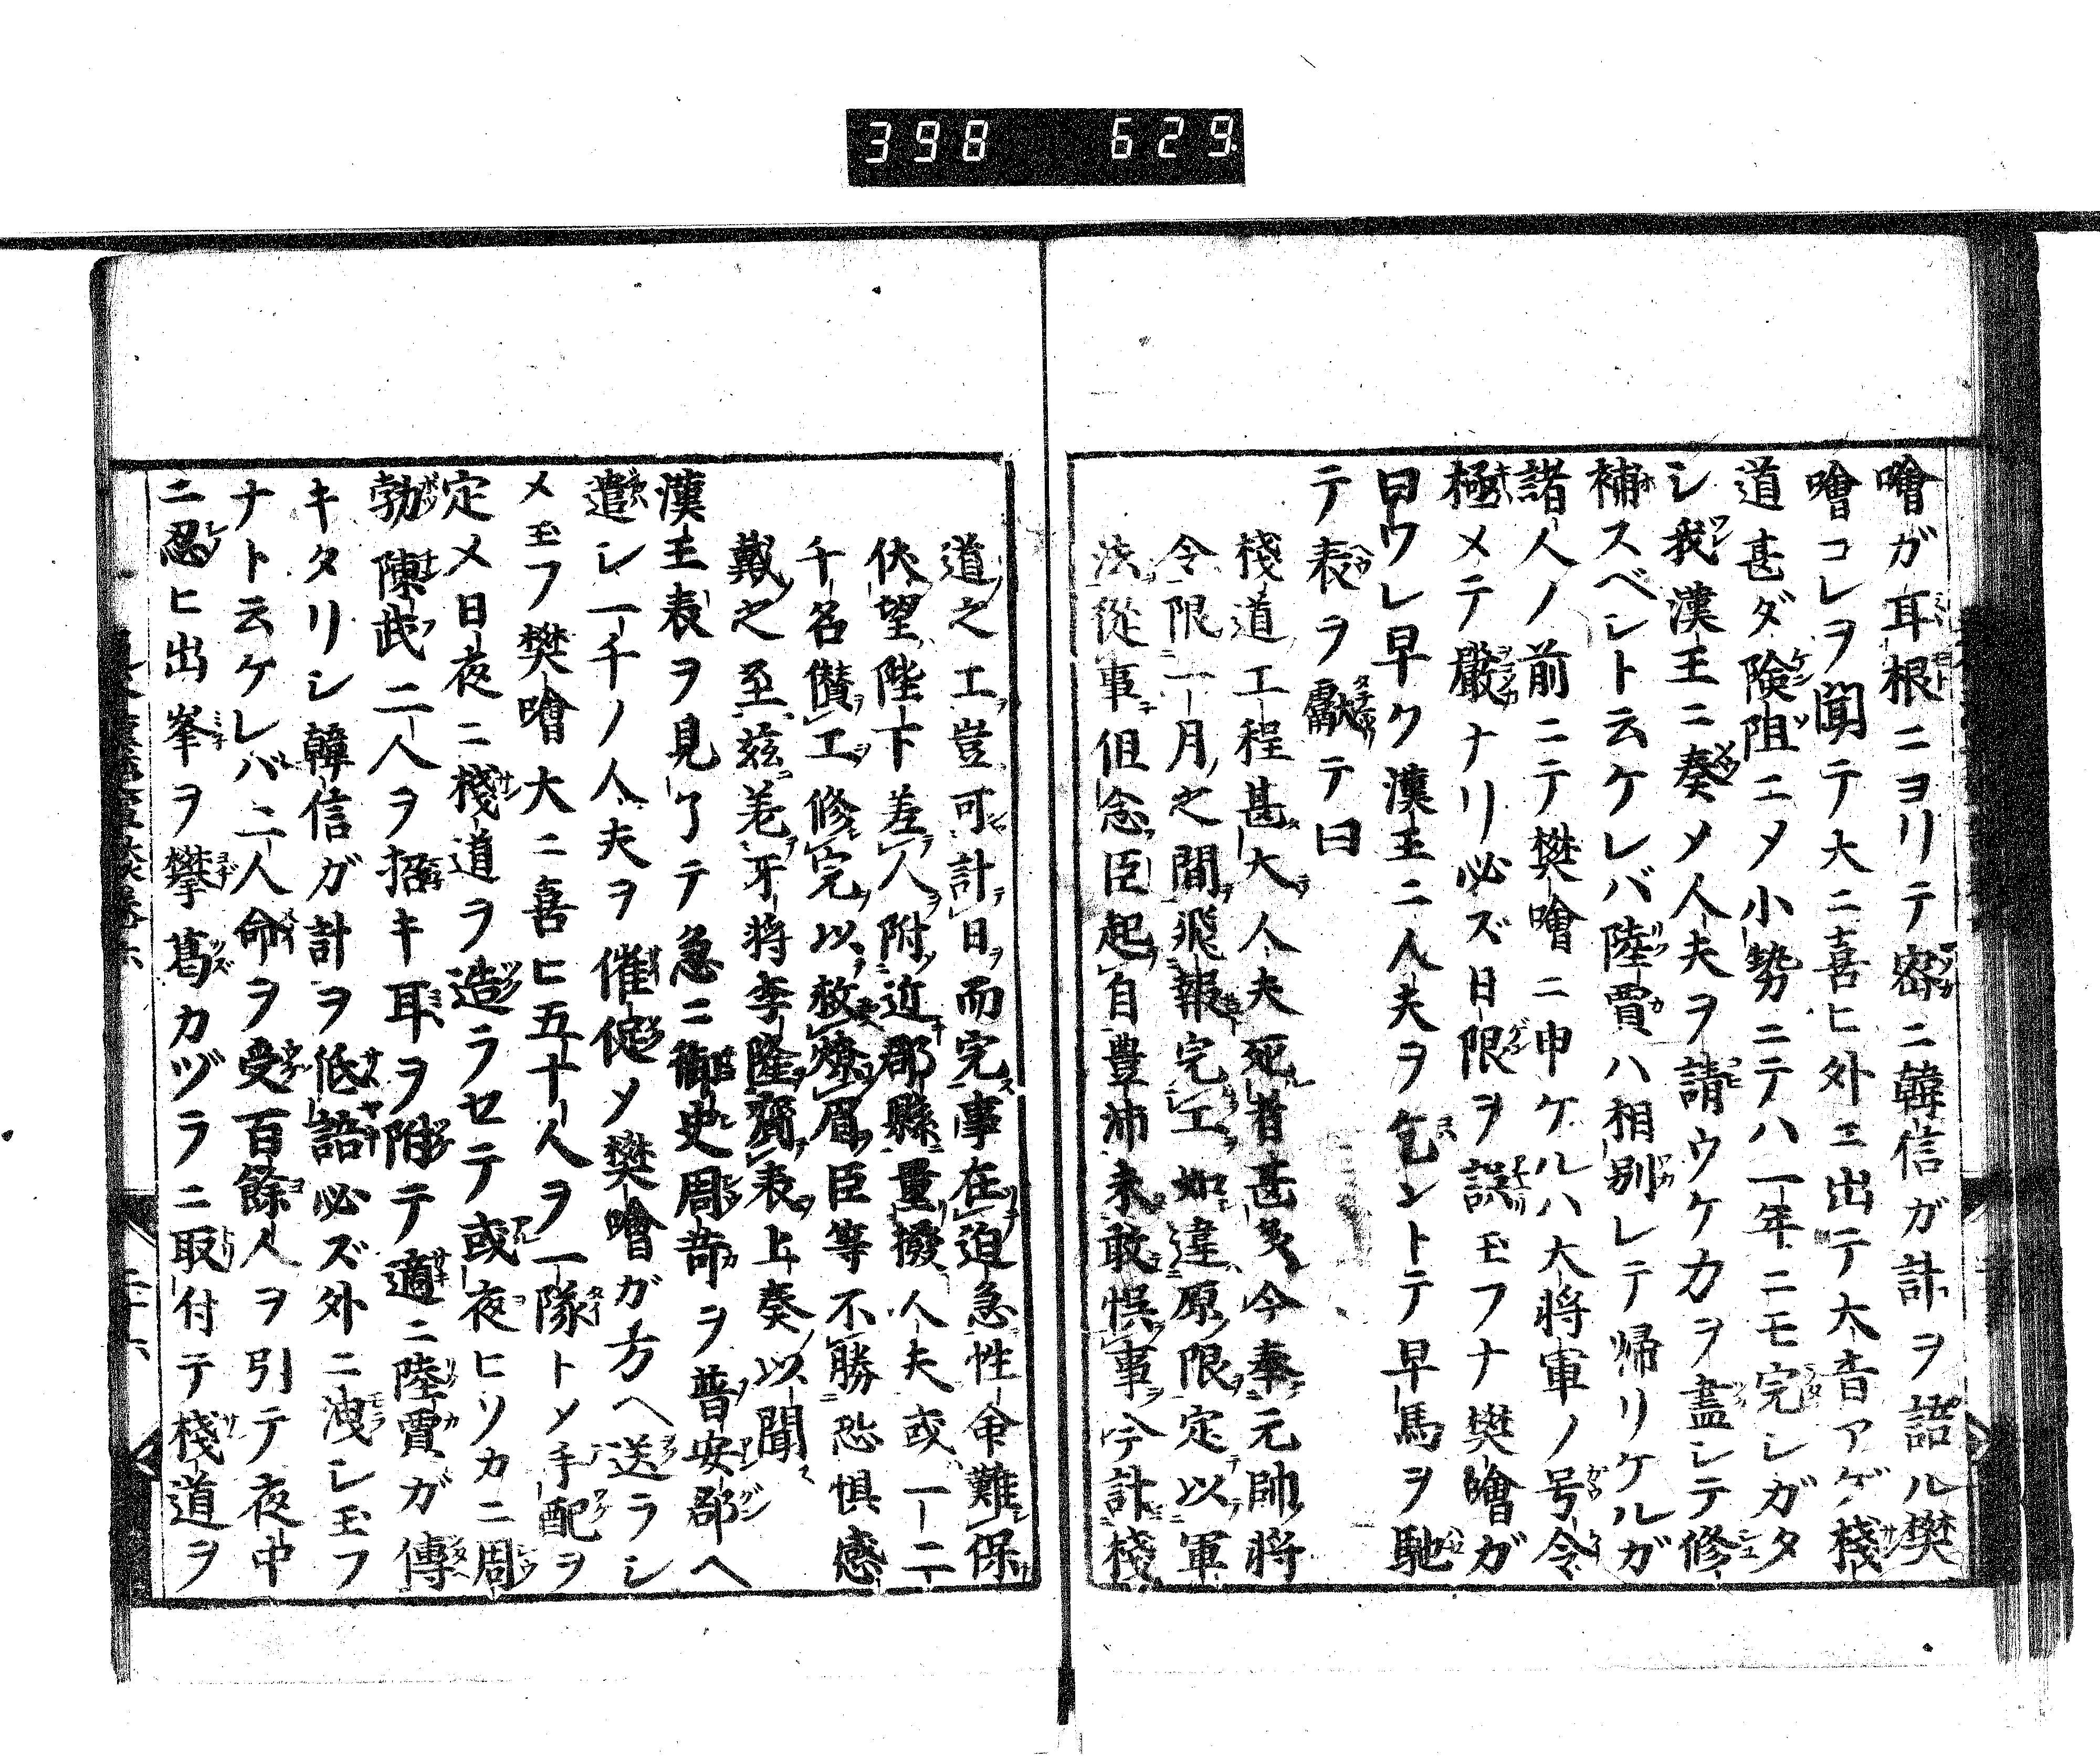 398 629
噲ガ耳根ニヨリテ密ニ韓信ガ計ヲ語ル樊
噲コレヲ聞テ大ニ喜ヒ外ニ出テ大音アゲ棧
道甚ダ険阻ニメ小勢ニテハ一年ニモ完シガタ
シ我漢王ニ奏メ人夫ヲ請ウケ力ヲ盡シテ修
補スベシト云ケレバ陸賈ハ相別レテ帰リケルガ
諸人ノ前ニテ樊噲ニ申ケルハ大将軍ノ号令
極メテ嚴ナリ必ズ日限ヲ誤玉フナ樊噲ガ
曰ウレ早ク漢王ニ人夫ヲ乞ントテ早馬ヲ馳
テ表ヲ獻テ曰
棧道工程甚大人夫死者甚多今奉元帥將
令限一月之間飛報完工如違原限定以軍
法從事但念臣起自豊沛未敢悞事今計棧
道之工豈可計日而完事在迫急性命難保
伏望陛下差人附近郡縣量撥人夫或一二
千名儹工修完以救燎眉臣等不勝恐惧感
戴之至茲差牙將李隆賫表上奏以聞
漢王表ヲ見了テ急ニ御史周苛ヲ普安郡ヘ
遣シ一千ノ人夫ヲ催促メ樊噲ガ方ヘ送ラシ
メ玉フ樊噲大ニ喜ヒ五十人ヲ一隊トメ手配ヲ
定メ日夜ニ棧道ヲ造ラセテ或夜ヒソカニ周
勃陳武二人ヲ招キ耳ヲ附テ適ニ陸賈ガ傳
キタリシ韓信ガ計ヲ低語必ズ外ニ洩シ玉フ
ナト云ケレバ二人命ヲ受百餘人ヲ引テ夜中
ニ忍ヒ出峯ヲ攀葛カヅラニ取付テ棧道ヲ